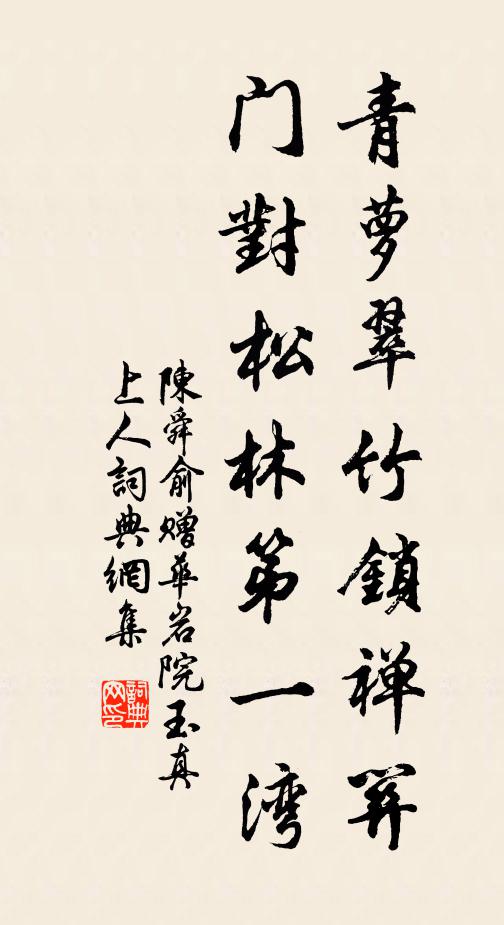 青萝翠竹鎖禅關
门對松林第一湾
陳舜俞赠華岩院玉真
上人詞典網集
詞典网印